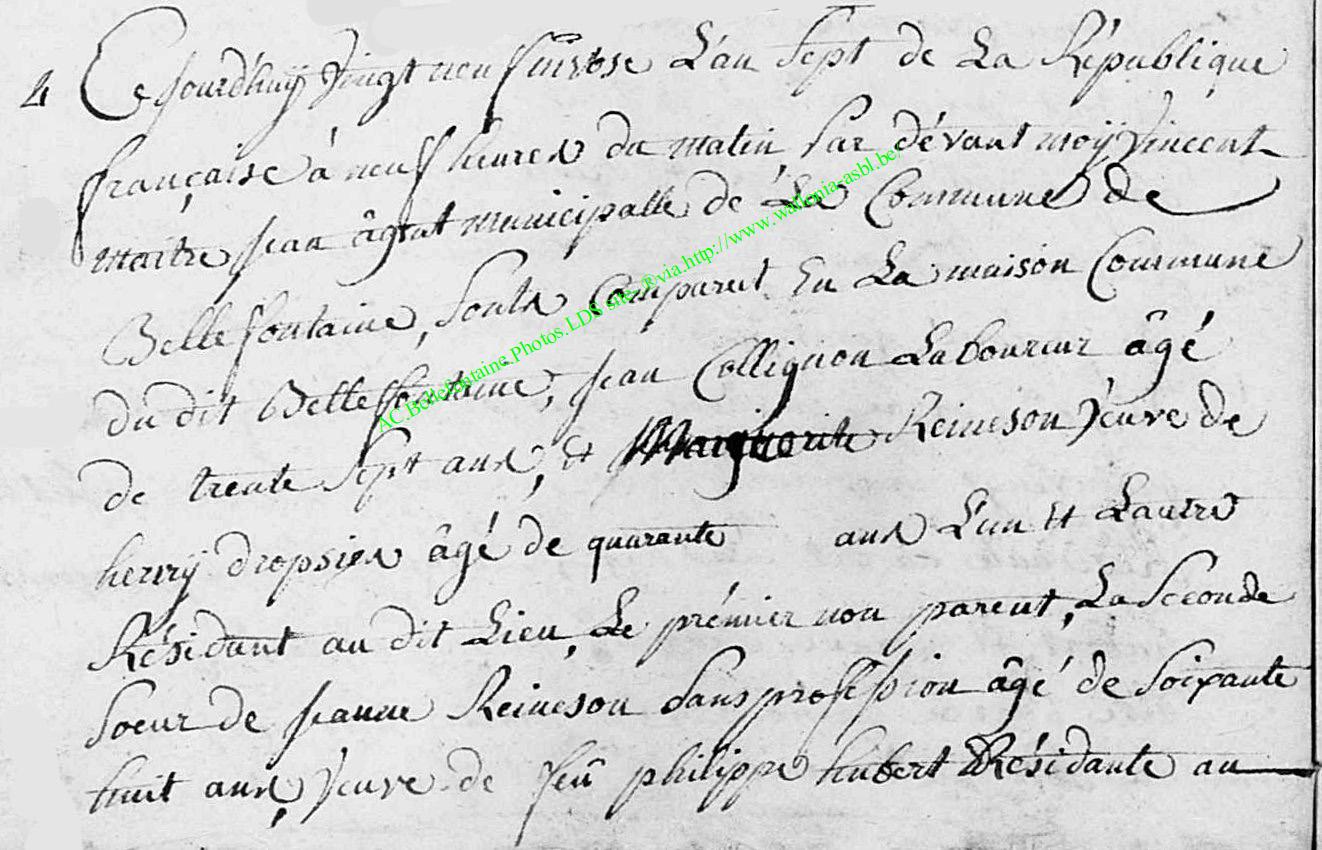 4 Ce Jourd'huÿ Vingt neuf nivose L'an Sept de La République
française à neuf heures du matin, Par dévant moÿ Vincent
maitre Jean âgent municipalle de La Commune de
Bellefontaine, Sont Comparut En La maison Commune
du dit Bellefontaine, Jean Collignon Laboureur âgé
de trente Sept ans, et Marguerite Reineson Veuve de
henrÿ dropsien âgé de quarante ans L'un et Lautre
Résidant au dit Lieu, Le prémier non parent, La Seconde
Soeur de Jeanne Reineson Sans profession âgé de Soixante
huit ans, Veuve de feû philippe hubert Résidante au
AC.Bellefontaine.Photos.LDS site.®via.http://www.wallonia-asbl.be/